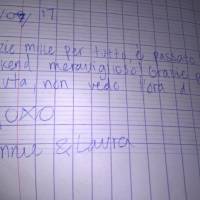 17
zie mille per tutto & passato
kend meraviglioso! Grazie p
uta, non vedo l'ora d
OXO
nnie & Laura